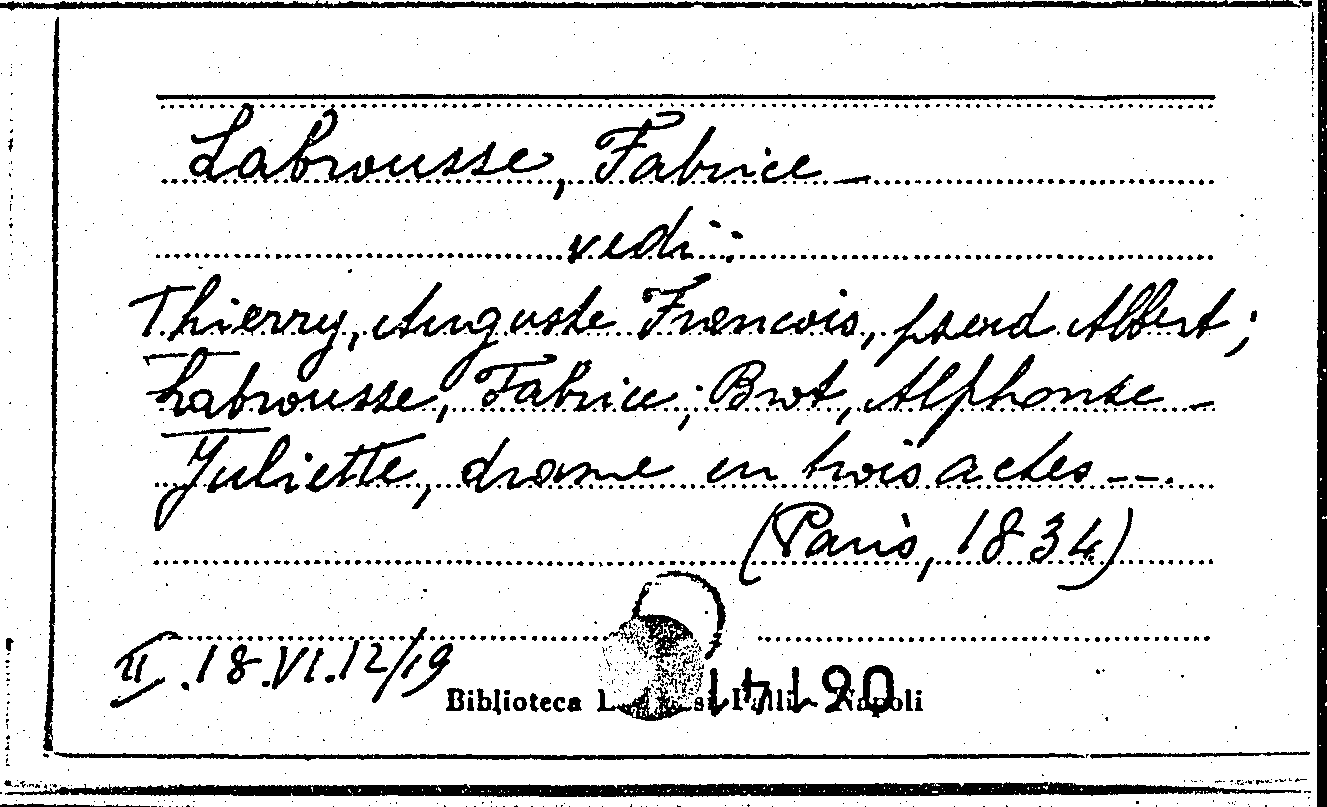 Labrousse, Fabrice –
vedi:
Thierry, Auguste Francois, pseud Albert;
Labrousse, Fabrice; Brot, Alphonse –
Juliette, drame en trois actes --.
(Paris, 1834)
II.18.VI.12/19
Biblioteca Napoli